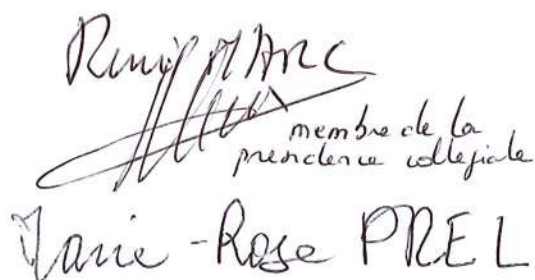 Rémi MARC
membre de la
presidence collegiale
Marie-Rose PREL